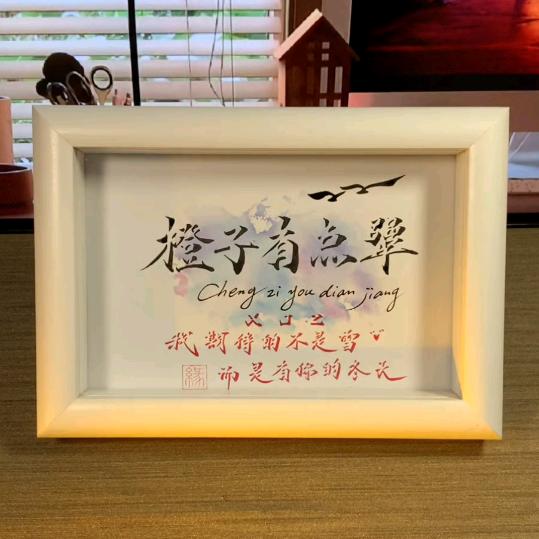 橙子有点犟
Cheng zi you dian jiang
我期待的不是雪
缘 而是有你的冬天